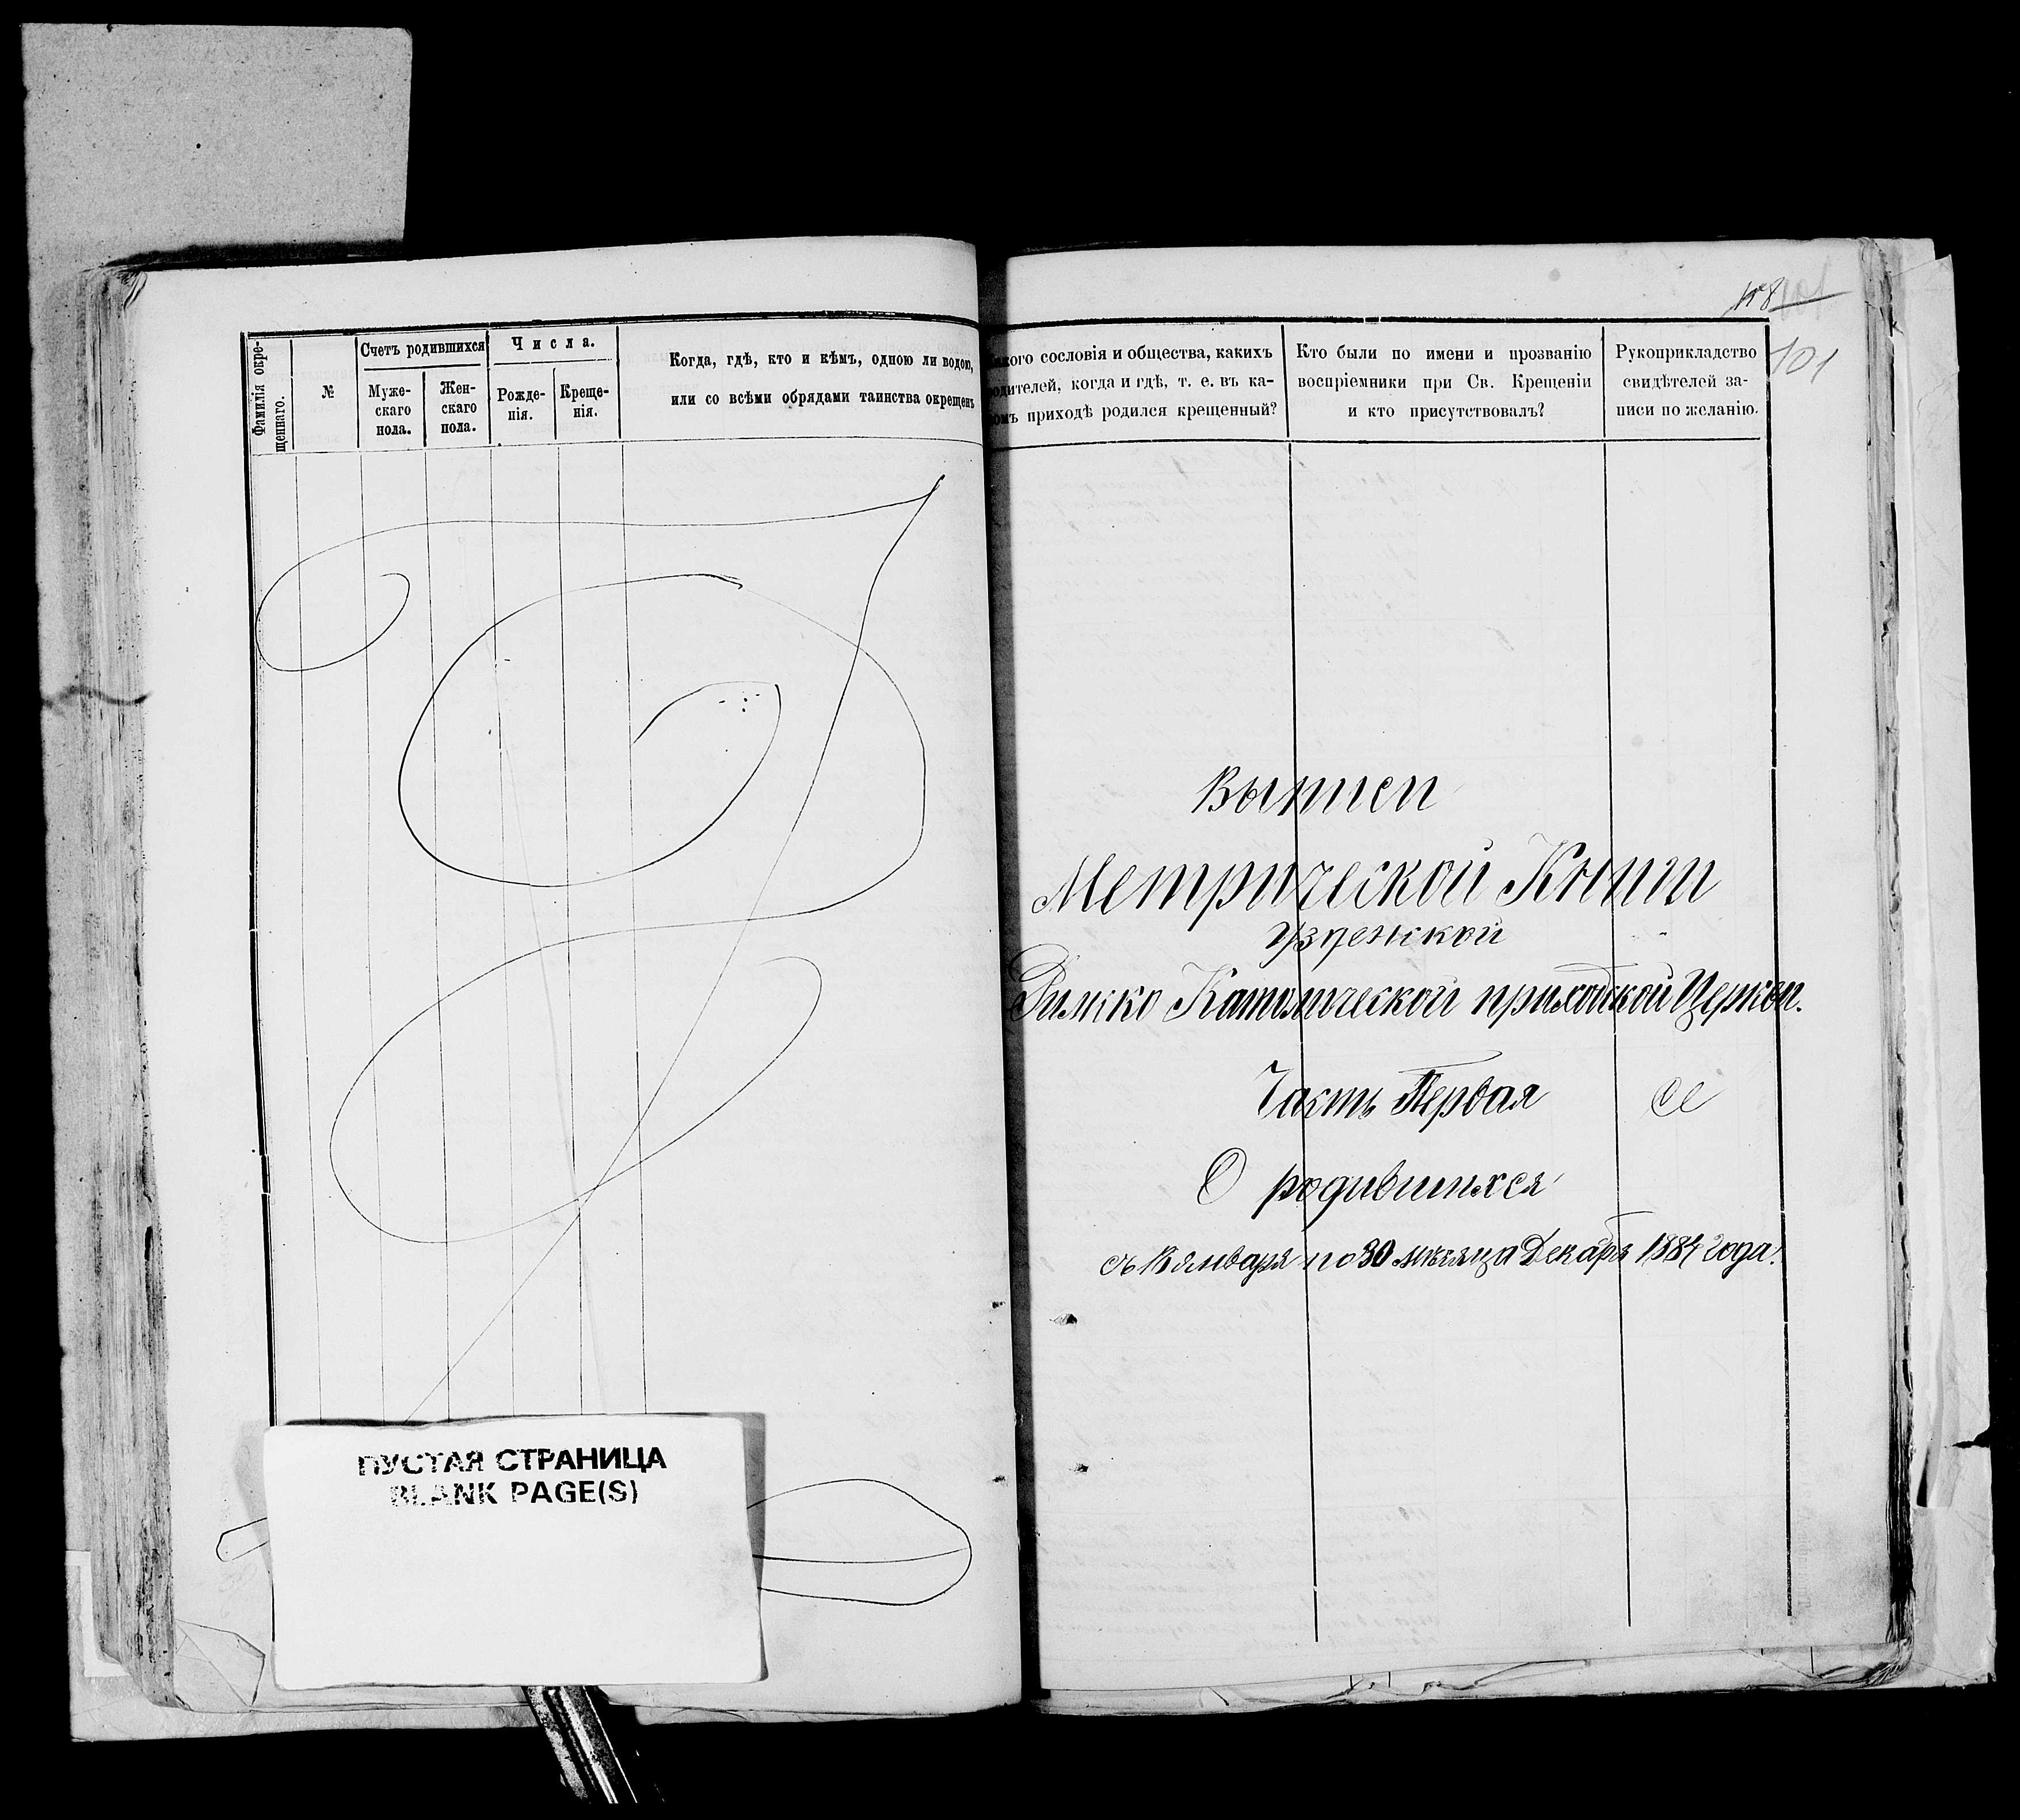 Фамилія окре-
щеннаго.
№
Счетъ родившихся
Муже-
скаго
пола.
Жен-
скаго
пола.
Числа.
Рожде-
нія.
Креще-
нія.
Когда, гдѣ, кто и кѣмъ, одною ли водою,
или со всѣми обрядами таинства окрещенъ
ПУСТАЯ СТРАНИЦА
BLANK PAGE(S)
101
сословія и общества, какихъ
когда и гдѣ, т. е. въ ка-
приходѣ родился крещенный?
Кто были по имени и прозванію
воспріемники при Св. Крещеніи
и кто присутствовалъ?
Рукоприкладство
свидѣтелей за-
писи по желанію.
Выписи
Метрической Книги
Узденской
Римско Католической приходской Церкви.
Часть Первая
О родившихся
съ Января по 30 мѣсяца Декабря 1884 года.